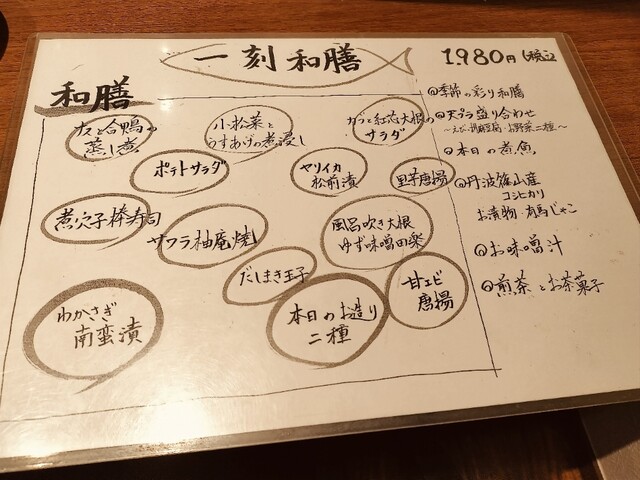 一刻和膳
1.980円(税込)
和膳
ナスと合鴨の
蒸し煮
小松菜と
うすあげの煮浸し
カブと紅芯大根の
サラダ
ポテトサラダ
ヤリイカ
松前漬
里芋唐揚
煮穴子棒寿司
サワラ柚庵焼
風呂吹き大根
ゆず味噌田楽
だしまき玉子
甘エビ
唐揚
わかさぎ
南蛮漬
本日のお造り
二種
季節の彩り和膳
天プラ盛り合わせ
お野菜二種～
本日の煮魚
丹波篠山産
コシヒカリ
お漬物・有馬じゃこ
お味噌汁
煎茶とお茶菓子